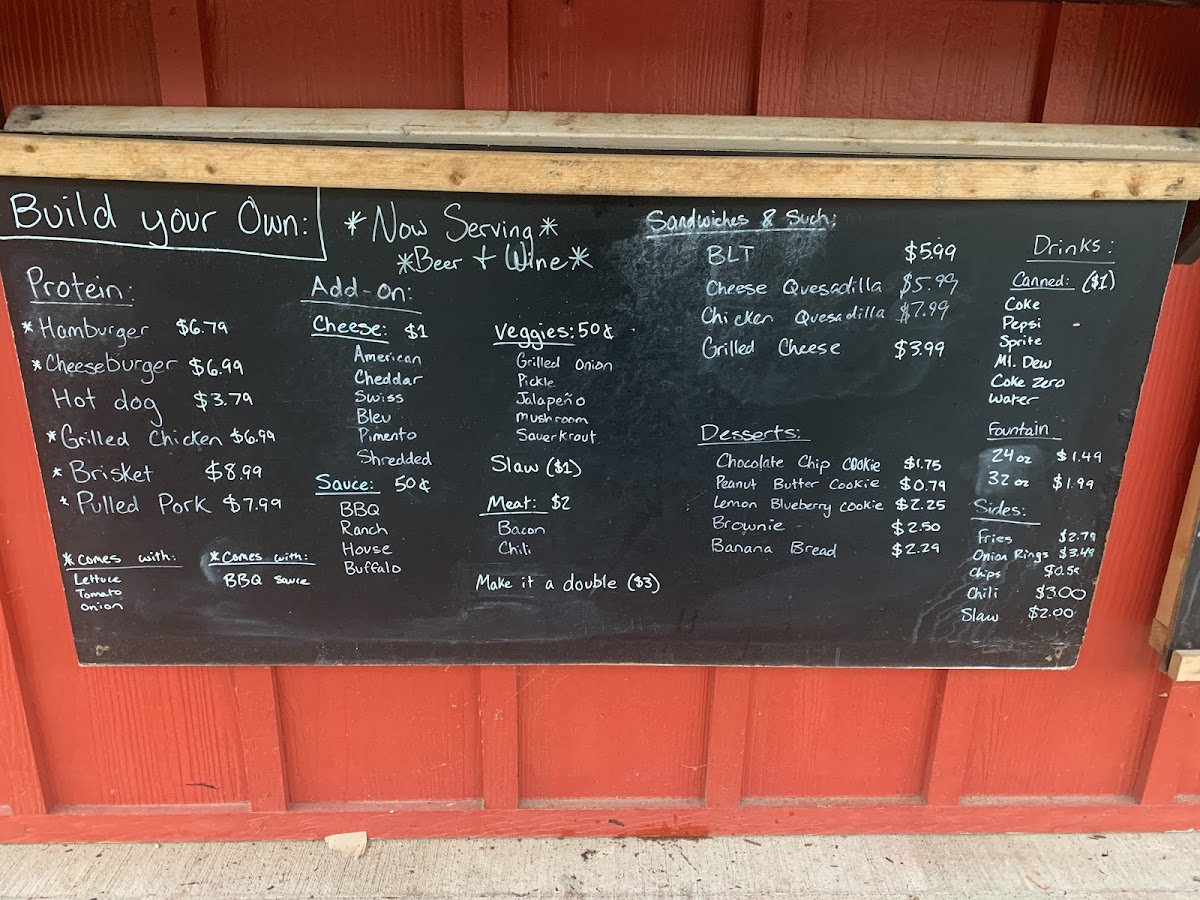 Build your Own:
*Now Serving*
*Beer + Wine*
Protein:
*Hamburger $6.79
*Cheeseburger $6.99
Hot dog $3.79
*Grilled Chicken $6.99
*Brisket $8.99
*Pulled Pork $7.99
*comes with:
Lettuce
Tomato
onion
*Comes with:
BBQ Sauce
Add-on:
Cheese: $1
American
Cheddar
Swiss
Bleu
Pimento
Shredded
Sauce: 50¢
BBQ
Ranch
House
Buffalo
Veggies: 50¢
Grilled onion
Pickle
Jalapeño
mushroom
Sauerkraut
Slaw ($1)
Meat: $2
Bacon
Chili
Make it a double ($3)
Sandwiches & Such:
BLT $5.99
Cheese Quesadilla $5.99
Chicken Quesadilla $7.99
Grilled Cheese $3.99
Desserts:
Chocolate Chip cookie $1.75
Peanut Butter Cookie $0.79
Lemon Blueberry cookie $2.25
Brownie - $2.50
Banana Bread $2.29
Drinks:
Canned: ($1)
Coke
Pepsi
Sprite
Mt. Dew
Coke Zero
water
Fountain
24oz $1.49
32oz $1.99
Sides:
Fries $2.79
Onion Rings $3.49
Chips
Chili $3.00
Slaw $2.00